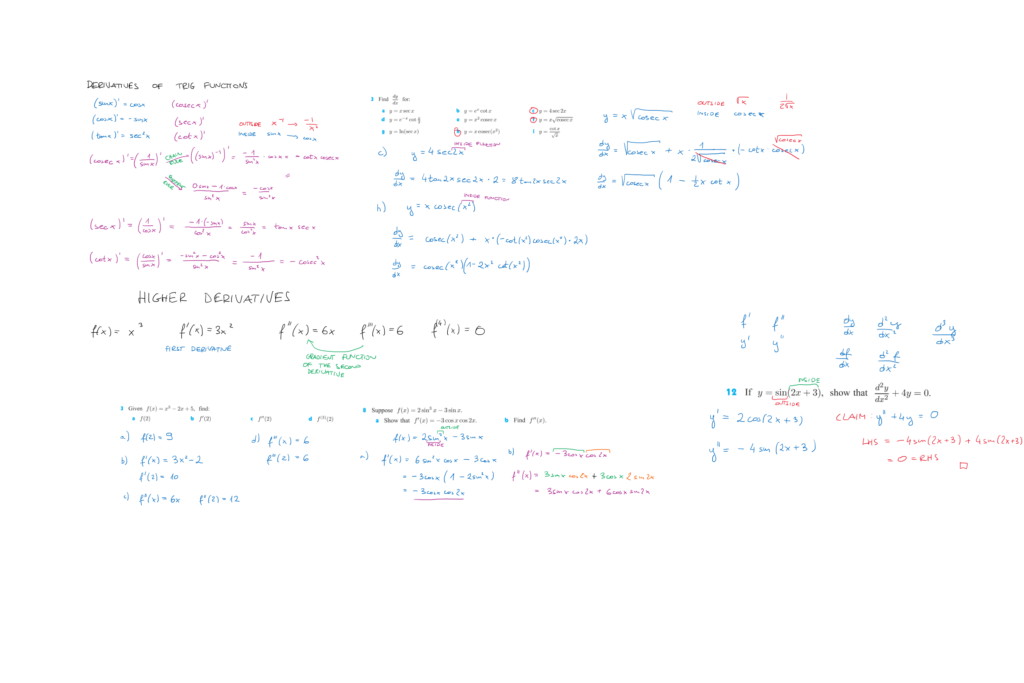 DERIVATIVES OF TRIG FUNCTIONS
(sinx)' = cosx (cosecx)'
(cosx)' = -sinx (secx)'
(tanx)' = sec²x (cotx)'
OUTSIDE x⁻¹ → -1/x²
INSIDE sinx → cosx
(cosec x)' = (1/sinx)' CHAIN RULE ((sinx)⁻¹)' = -1/sin²x · cosx = -cotx cosecx
0·sinx - 1·cosx/sin²x = -cosx/sin²x
(secx)' = (1/cosx)' = -1·(-sinx)/cos²x = sinx/cos²x = tanx secx
(cotx)' = (cosx/sinx)' = -sin²x - cos²x/sin²x = -1/sin²x = -cosec²x
2 Find dy/dx for:
a y = x sec x b y = eˣ cot x c y = 4 sec 2x
d y = e⁻ˣ cot x/2 e y = x² cosec x f y = x√cosec x
g y = ln(sec x) h y = x cosec(x²) i y = cot x/√x
INSIDE FUNCTION
c) y = 4 sec2x
dy/dx = 4tan2x sec2x · 2 = 8tan2x sec2x
INSIDE FUNCTION
h) y = x cosec(x²)
dy/dx = cosec(x²) + x·(-cot(x²)cosec(x²)·2x)
dy/dx = cosec(x²)(1-2x² cot(x²))
y = x √cosec x
OUTSIDE √x 1/2√x
INSIDE cosec x
dy/dx = √cosec x + x · 1/2√cosecx · (-cotx cosecx) √cosecx
dy/dx = √cosec x (1 - ½x cot x)
HIGHER DERIVATIVES
f(x) = x³ f'(x) = 3x² f''(x) = 6x f'''(x) = 6 f⁽⁴⁾(x) = 0
FIRST DERIVATIVE
GRADIENT FUNCTION
OF THE SECOND
DERIVATIVE
f' f'' dy/dx d²y/dx² d³y/dx³
y' y'' df/dx d²f/dx²
3 Given f(x) = x³ - 2x + 5, find:
a f(2) b f'(2) c f''(2) d f⁽³⁾(2)
a) f(2) = 9
b) f'(x) = 3x²-2
f'(2) = 10
c) f''(x) = 6x f''(2) = 12
d) f'''(x) = 6
f'''(2) = 6
8 Suppose f(x) = 2 sin³ x - 3 sin x.
a Show that f'(x) = -3 cos x cos 2x. b Find f''(x).
OUTSIDE
f(x) = 2sin³x - 3sinx
INSIDE
a) f'(x) = 6 sin²x cosx - 3cosx
= -3cosx (1 - 2sin²x)
= -3cosx cos2x
b) f'(x) = -3cosx cos2x
f''(x) = 3sinx cos2x + 3cosx 2sin2x
= 3sinx cos2x + 6cosx sin2x
INSIDE
12 If y = sin(2x + 3), show that d²y/dx² + 4y = 0.
OUTSIDE
y' = 2cos(2x+3)
y'' = -4sin(2x+3)
CLAIM: y'' + 4y = 0
LHS = -4sin(2x+3) + 4sin(2x+3)
= 0 = RHS